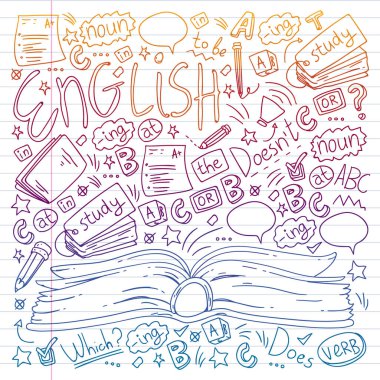 A+ noun in ing A T
to be study
ENGLISH
A B C OR ?
ing at Doesn't noun
in B A+ the
at ABC
C at in study A B C OR B ing
ing
Which? ing B C Does VERB